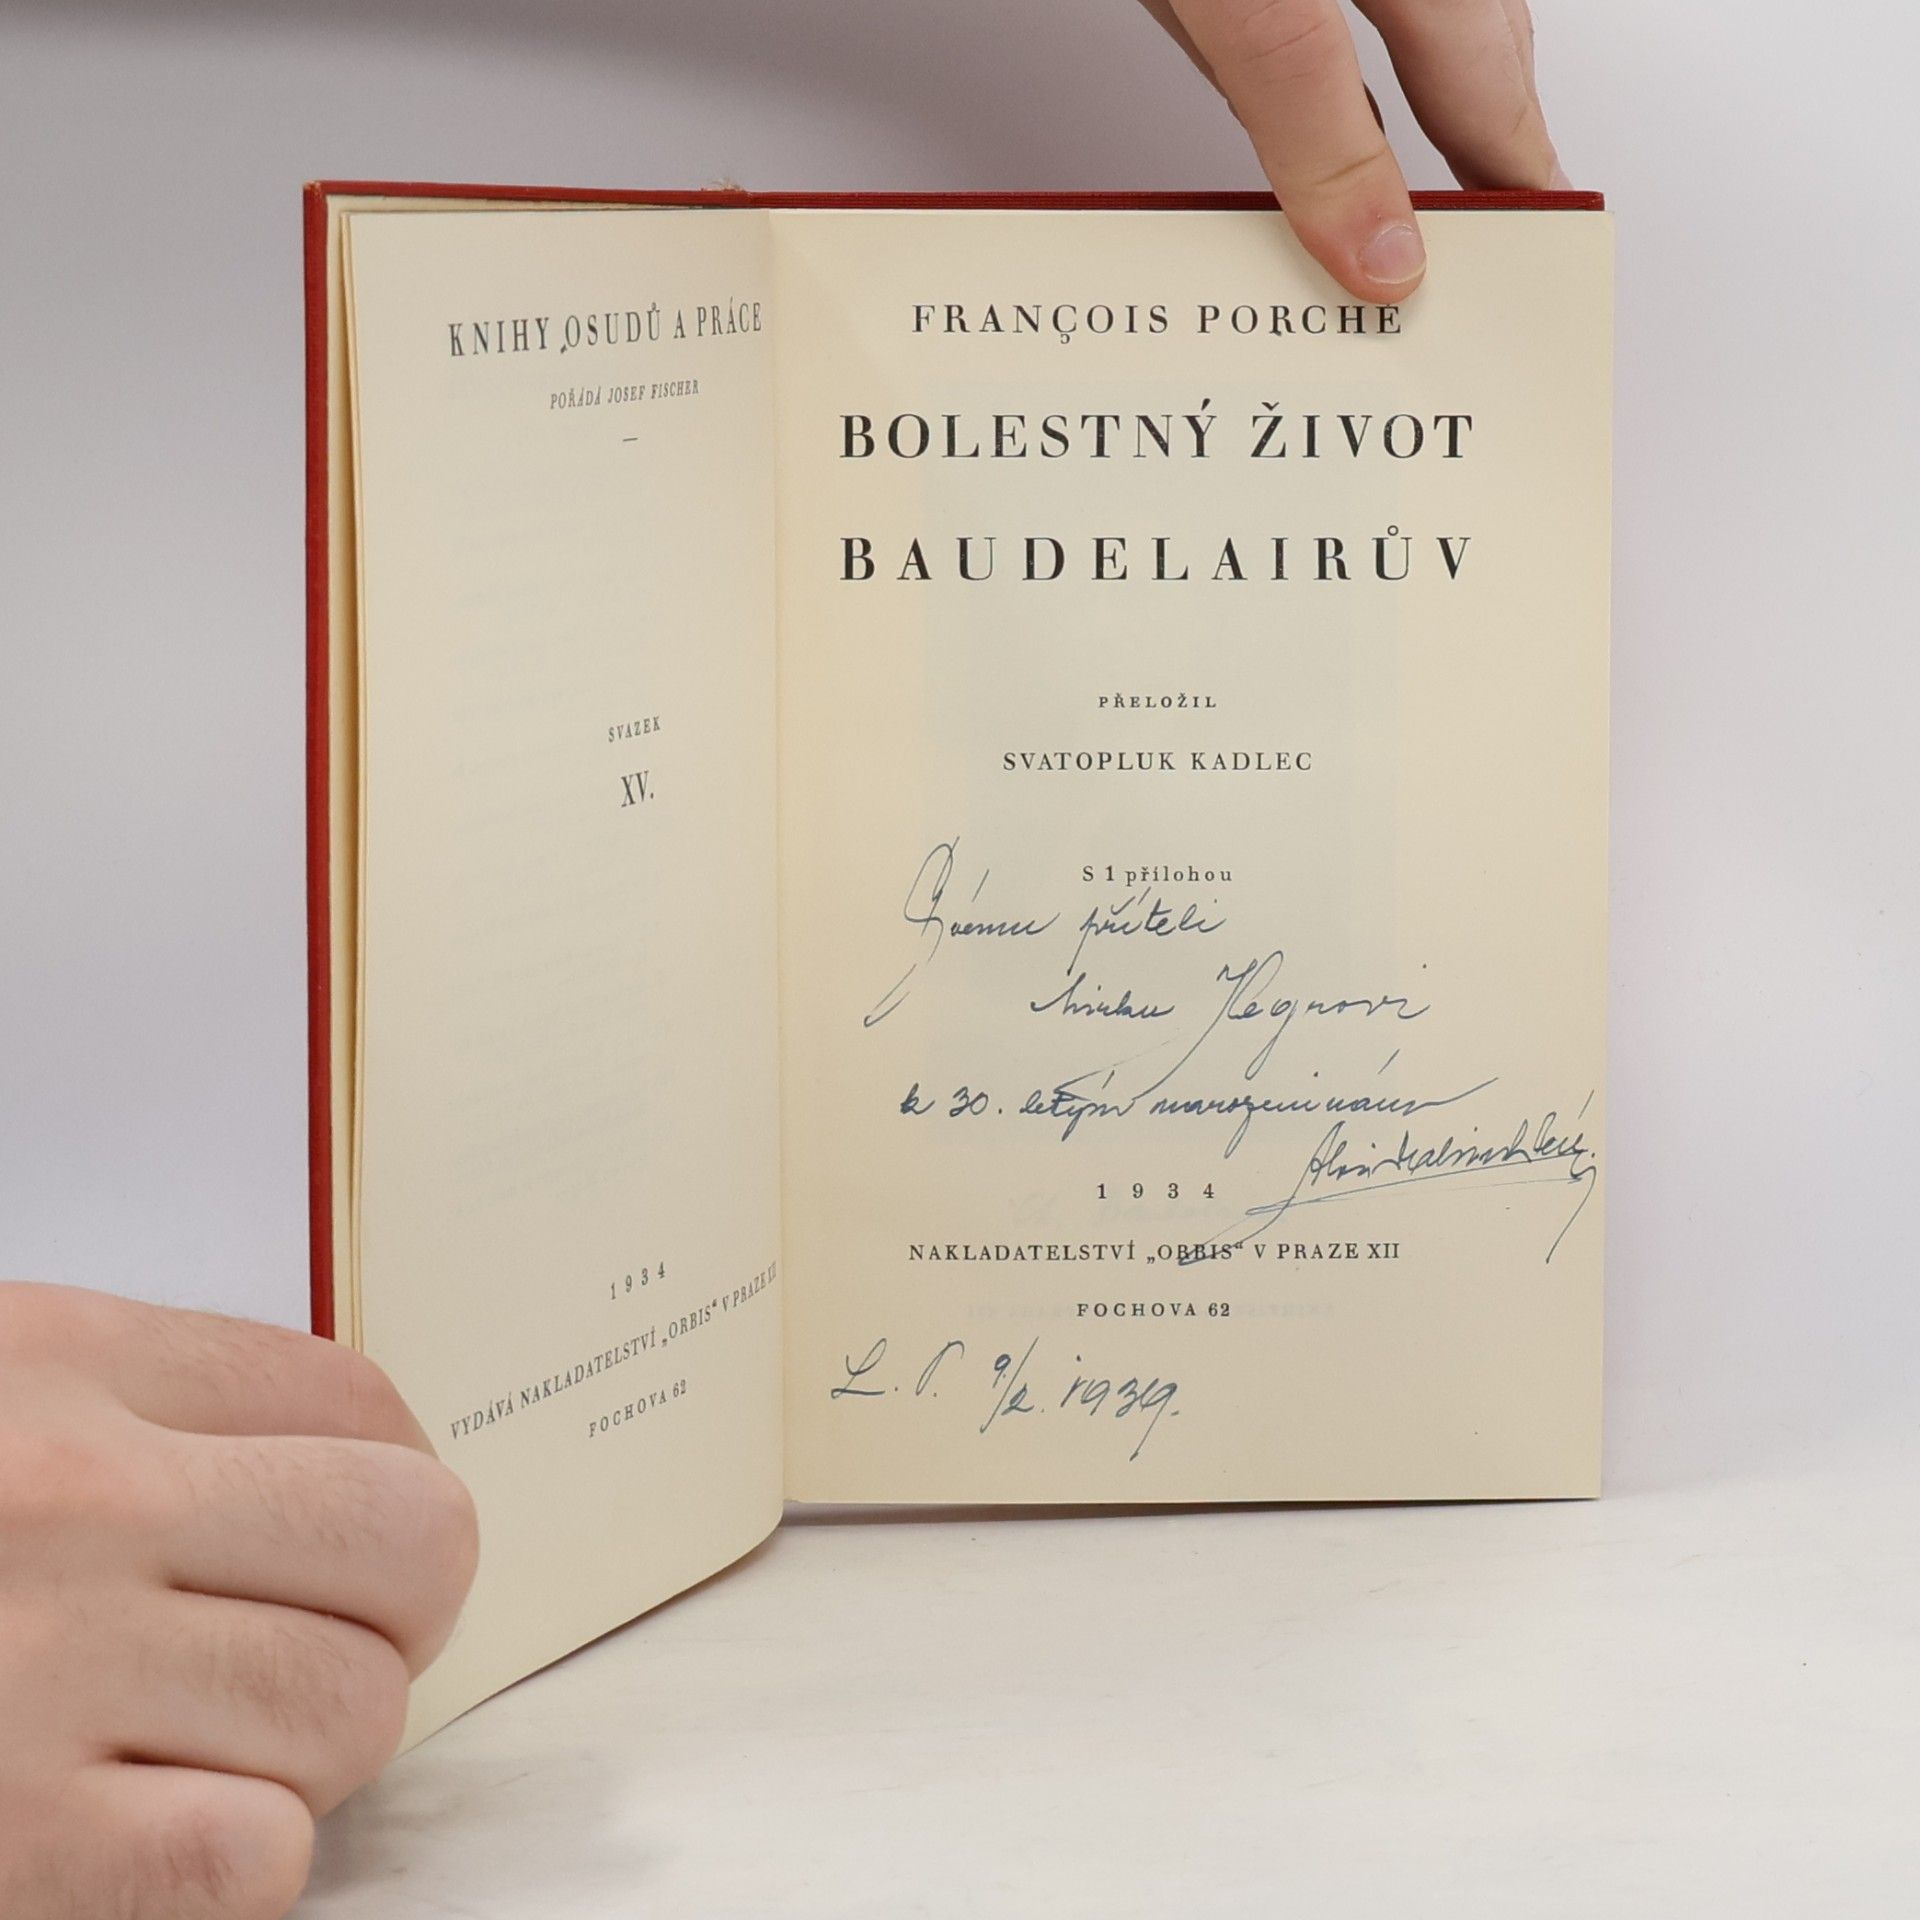 KNIHY OSUDŮ A PRÁCE
POŘÁDÁ JOSEF FISCHER
SVAZEK
XV.
1934
VYDÁVÁ NAKLADATELSTVÍ „ORBIS“ V PRAZE XII
FOCHOVA 62
FRANÇOIS PORCHÉ
BOLESTNÝ ŽIVOT
BAUDELAIRŮV
PŘELOŽIL
SVATOPLUK KADLEC
S 1 přílohou
Svému příteli
Mirku Hegrovi
k 30. letým narozeninám
1934
NAKLADATELSTVÍ „ORBIS“ V PRAZE XII
FOCHOVA 62
L. P. 9./2. 1939.